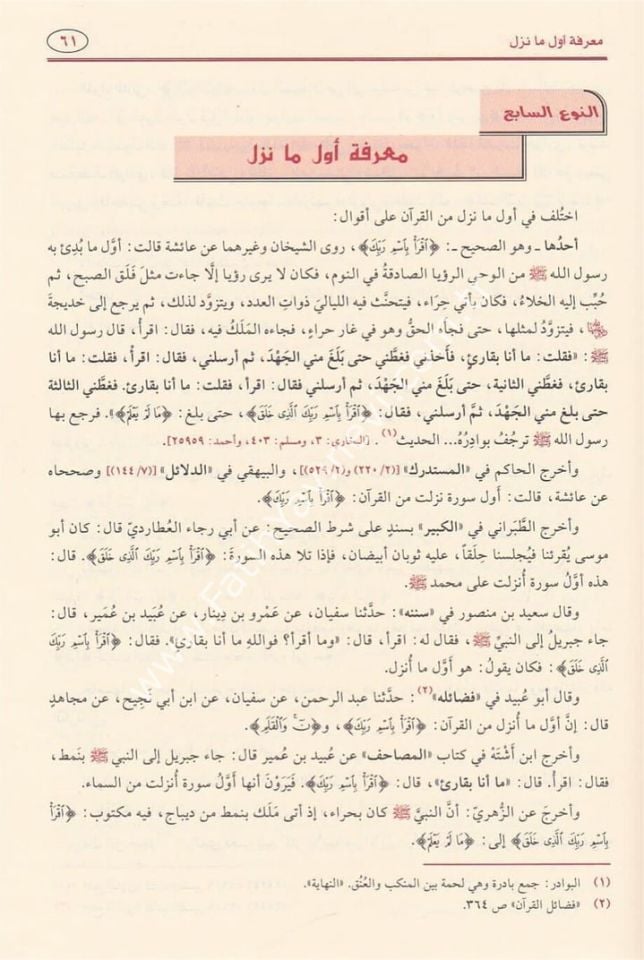 معرفة أول ما نزل
٦١
النوع السابع
معرفة أول ما نزل
اختُلف في أول ما نزل من القرآن على أقوال:
أحدُها ـ وهو الصحيح ـ: ﴿ٱقْرَأْ بِٱسْمِ رَبِّكَ﴾، روى الشيخان وغيرهما عن عائشة قالت: أوَّل ما بُدئ به
رسول الله ﷺ من الوحي الرؤيا الصادقةُ في النوم، فكان لا يرى رؤيا إلَّا جاءت مثلَ فَلَق الصبح، ثم
حُبِّب إليه الخلاءُ، فكان يأتي حِرَاء، فيتحنَّث فيه الليالي ذواتِ العدد، ويتزوَّد لذلك، ثم يرجع إلى خديجةَ
رضي الله عنها، فيتزوَّد لمثلها، حتى فجأه الحقُّ وهو في غار حراء، فجاءه المَلَك فيه، فقال: اقرأ، قال رسول الله
ﷺ: «فقلت: ما أنا بقارئٍ، فأخذني فغطَّني حتى بَلَغَ مني الجَهْدَ، ثم أرسلني، فقال: اقرأ، فقلت: ما أنا
بقارئ، فغطَّني الثانية، حتى بَلَغ مني الجَهْدَ، ثم أرسلني فقال: اقرأ، فقلت: ما أنا بقارئ. فغطَّني الثالثة
حتى بلغ مني الجَهْدَ، ثمَّ أرسلني، فقال: ﴿ٱقْرَأْ بِٱسْمِ رَبِّكَ ٱلَّذِى خَلَقَ﴾، حتى بلغ: ﴿مَا لَمْ يَعْلَمْ﴾». فرجع بها
رسول الله ﷺ ترجُفُ بوادِرُه... الحديث(١). [البخاري: ٣، ومسلم: ٤٠٣، وأحمد: ٢٥٩٥٩].
وأخرج الحاكم في «المستدرك» [(٢/ ٢٢٠) و(٢/ ٥٢٩)]، والبيهقي في «الدلائل» [(٧/ ١٤٤)] وصححاه
عن عائشة، قالت: أول سورة نزلت من القرآن: ﴿ٱقْرَأْ بِٱسْمِ رَبِّكَ﴾.
وأخرج الطَّبَراني في «الكبير» بسندٍ على شرط الصحيح: عن أبي رجاء العُطاردِيِّ قال: كان أبو
موسى يُقرئنا فيُجلسنا حِلَقاً، عليه ثوبان أبيضان، فإذا تلا هذه السورةَ: ﴿ٱقْرَأْ بِٱسْمِ رَبِّكَ ٱلَّذِى خَلَقَ﴾. قال:
هذه أوَّلُ سورة أُنزلت على محمد ﷺ.
وقال سعيد بن منصور في «سننه»: حدَّثنا سفيان، عن عَمْرو بن دِينار، عن عُبَيد بن عُمَير، قال:
جاء جبريلُ إلى النبيِّ ﷺ، فقال له: اقرأ، قال: «وما أقرأ؟ فوالله ما أنا بقارئٍ». فقال: ﴿ٱقْرَأْ بِٱسْمِ رَبِّكَ
ٱلَّذِى خَلَقَ﴾: فكان يقولُ: هو أوَّل ما أُنزل.
وقال أبو عُبيد في «فضائله»(٢): حدَّثنا عبد الرحمن، عن سفيان، عن ابن أبي نَجيح، عن مجاهدٍ
قال: إنَّ أوَّل ما أُنزل من القرآن: ﴿ٱقْرَأْ بِٱسْمِ رَبِّكَ﴾، و﴿نٓ وَٱلْقَلَمِ﴾.
وأخرج ابن أَشْتَهْ في كتاب «المصاحف» عن عُبيد بن عُمير قال: جاء جبريل إلى النبي ﷺ بنَمط،
فقال: اقرأ. قال: «ما أنا بقارئ»، قال: ﴿ٱقْرَأْ بِٱسْمِ رَبِّكَ﴾. فيَرَوْنَ أنها أوَّلُ سورة أُنزلت من السماء.
وأخرجَ عن الزُّهريِّ: أنَّ النبيَّ ﷺ كان بحراء، إذ أتى مَلَك بنمط من ديباج، فيه مكتوب: ﴿ٱقْرَأْ
بِٱسْمِ رَبِّكَ ٱلَّذِى خَلَقَ﴾ إلى: ﴿مَا لَمْ يَعْلَمْ﴾.
(١) البوادر: جمع بادرة وهي لحمة بين المنكب والعُنق. «النهاية».
(٢) «فضائل القرآن» ص ٣٦٤.